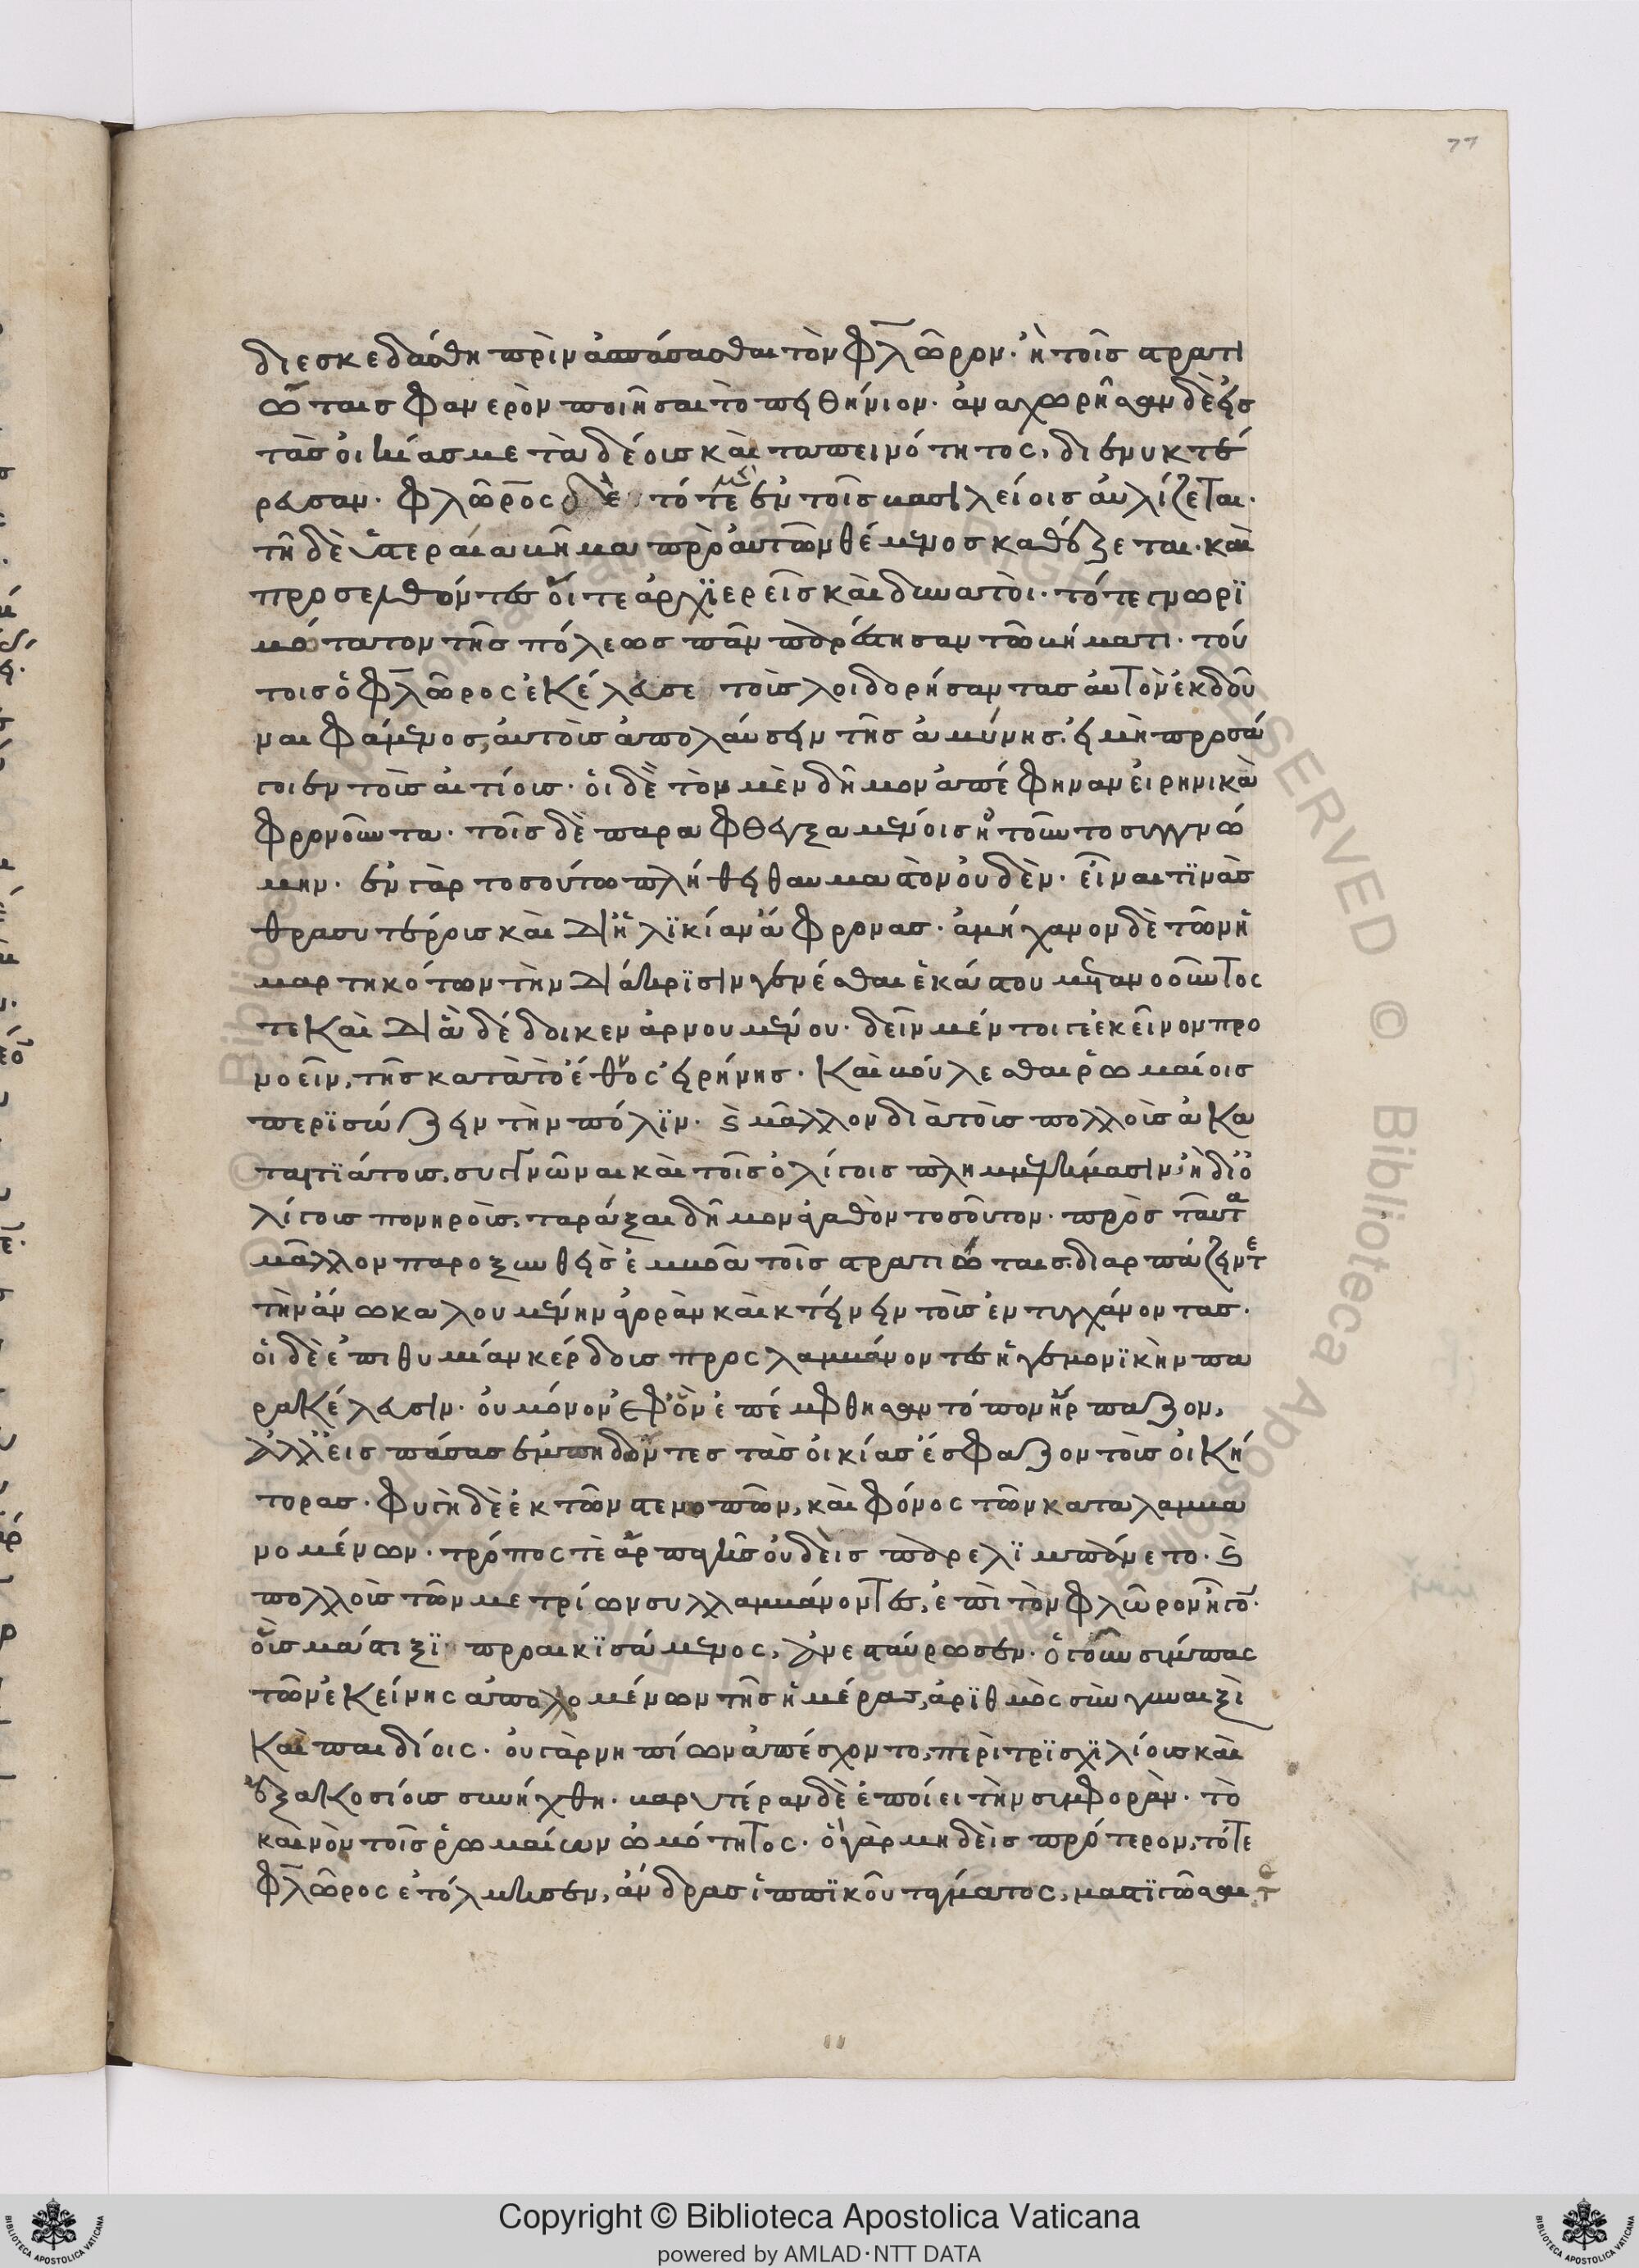 77
διεσκεδάσθη πρὶν ἀσπάσασθαι τὸν φλῶρον· ἢ τοῖς στρατι
ώταις φανερὸν ποιῆσαι τὸ πειθήνιον· ἀναχωρήσαντες δὲ εἰς
τὰς οἰκίας μετὰ δέους καὶ ταπεινότητος, διενυκτέ
ρευσαν· φλῶρος δὲ τότε μὲν ἐν τοῖς βασιλείοις αὐλίζεται·
τῇ δὲ ὑστεραίᾳ βῆμα πρὸ αὐτῶν θέμενος καθέζεται· καὶ
προσελθόντες οἵ τε ἀρχϊερεῖς καὶ δυνατοὶ· τό τε γνωρϊ
μώτατον τῆς πόλεως πᾶν παρέστησαν τῷ βήματι· τού
τοις ὁ φλῶρος ἐκέλευσε τοὺς λοιδορήσαντας αὐτὸν ἐκδοῦ
ναι φάμενος, αὐτοὺς ἀπολαύσειν τῆς ἀμύνης, εἰ μὴ προσά
γοιεν τοὺς αἰτίους· οἱ δὲ τὸν μὲν δῆμον ἀπέφηναν εἰρηνικὰ
φρονοῦντα· τοῖς δὲ παραφθεγξαμένοις ᾐτοῦντο συγγνώ
μην· ἐν γὰρ τοσούτῳ πλήθει θαυμαστὸν οὐδὲν· εἶναί τϊνας
θρασυτέρους καὶ δι' ἡλϊκίαν ἄφρονας· ἀμήχανον δὲ τῶν ἡ
μαρτηκότων τὴν διάκρϊσιν γενέσθαι ἑκάστου μετανοοῦντος
τε καὶ δι' ἃ δέδοικεν ἀρνουμένου· δεῖν μέντοι γε ἐκεῖνον προ
νοεῖν, τῆς κατὰ τὸ ἔθος εἰρήνης· καὶ βούλεσθαι ῥωμαίοις
περϊσώζειν τὴν πόλϊν· καὶ μᾶλλον διὰ τοὺς πολλοὺς ἀκα
ταιτϊάτους, συγγνῶναι καὶ τοῖς ὀλίγοις πλημμελήμασιν, ἢ δι' ὀ
λίγους πονηροὺς, ταράξαι δῆμον ἀγαθὸν τοσοῦτον· πρὸς ταῦτα
μᾶλλον παροξυνθεὶς ἐμβοᾷ τοῖς στρατιώταις διαρπάζειν τε
τὴν ἄνω καλουμένην ἀγορὰν καὶ κτείνειν τοὺς ἐντυγχάνοντας·
οἱ δὲ ἐπιθυμίαν κέρδους προσλαμβάνοντες ἡγεμονϊκὴν πα
ρακέλευσιν· οὐ μόνον ἐφ' ὃν ἐπέμφθησαν τόπον ἥρπαζον,
ἀλλ' εἰς πάσας ἐμπηδῶντες τὰς οἰκίας ἔσφαζον τοὺς οἰκή
τορας· φυγὴ δὲ ἐκ τῶν στενωπῶν, καὶ φόνος τῶν καταλαμβα
νομένων· τρόπος τὲ ἁρπαγῆς οὐδεὶς παρελϊμπάνετο· καὶ
πολλοὺς τῶν μετρίων συλλαμβάνοντες, ἐπὶ τὸν φλῶρον ἦγον·
οὓς μάστιξϊ προαικϊσάμενος, ἀνεσταύρωσεν· ὁ γοῦν σύμπας
τῶν ἐκείνης ἀπολομένων τῆς ἡμέρας, ἀρϊθμὸς σὺν γυναιξὶ
καὶ παιδίοις· οὐ γὰρ νηπίων ἀπέσχοντο, περὶ τρϊσχϊλίους καὶ
ἑξακοσίους συνήχθη· βαρυτέραν δὲ ἐποίει τὴν συμφορὰν· τὸ
καινὸν τῆς ῥωμαίων ὠμότητος· ὃ γὰρ μηδεὶς πρότερον, τότε
φλῶρος ἐτόλμησεν, ἄνδρας ἱππϊκοῦ τάγματος, μαστϊγῶσαί τε
Copyright © Biblioteca Apostolica Vaticana
powered by AMLAD·NTT DATA